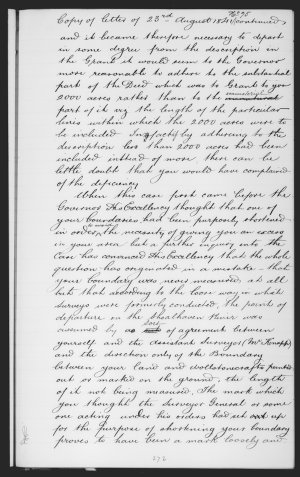 76/95
Copy of letter of 23rd August 1841 (continued)
and it became therefore necessary to depart
in some degree from the description in
the Grant it would seem to the Governor
more reasonable to adhere to the substantial
part of the Deed which was to Grant to you
2000 acres rather than to the immaterial
part of it viz the length of the particular
lines within which the 2000 acres were to
be included In fact if by adhering to the
description less than 2000 acres had been
included instead of more there can be
little doubt that you would have complained
of the deficiency
When this case first came before the
Governor His Excellency thought that one of
your boundaries had been purposely shortened
in order to avoid the necessity of giving you an excess
in your area but a further inquiry into the
Case has convinced His Excellency that the whole
question has originated in a mistake - that
your boundary was never measured at all
but that according to the loose way in which
Surveys were formerly conducted, the points of
departure in the Strathaven River was
assumed by a sort of agreement between
yourself and the Assistant Surveyor (Mr Knapp)
and the direction only of the Boundary
between your land and Wollstonecrafts pointed
out or marked on the ground, the length
of it not being measured. The mark which
you thought the Surveyor General or some
one acting under his orders had set up
for the purpose of shortening your boundary
proves to have been a mark loosely and
272